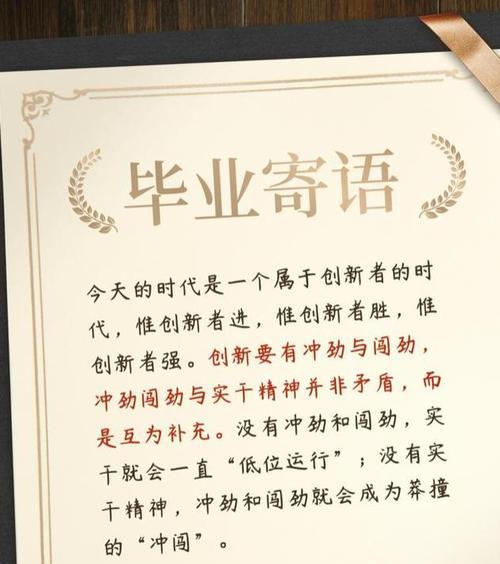 毕业寄语
今天的时代是一个属于创新者的时
代，惟创新者进，惟创新者胜，惟
创新者强。创新要有冲劲与闯劲，
冲劲闯劲与实干精神并非矛盾，而
是互为补充。没有冲劲和闯劲，实
干就会一直“低位运行”；没有实
干精神，冲劲和闯劲就会成为莽撞
的“冲闯”。